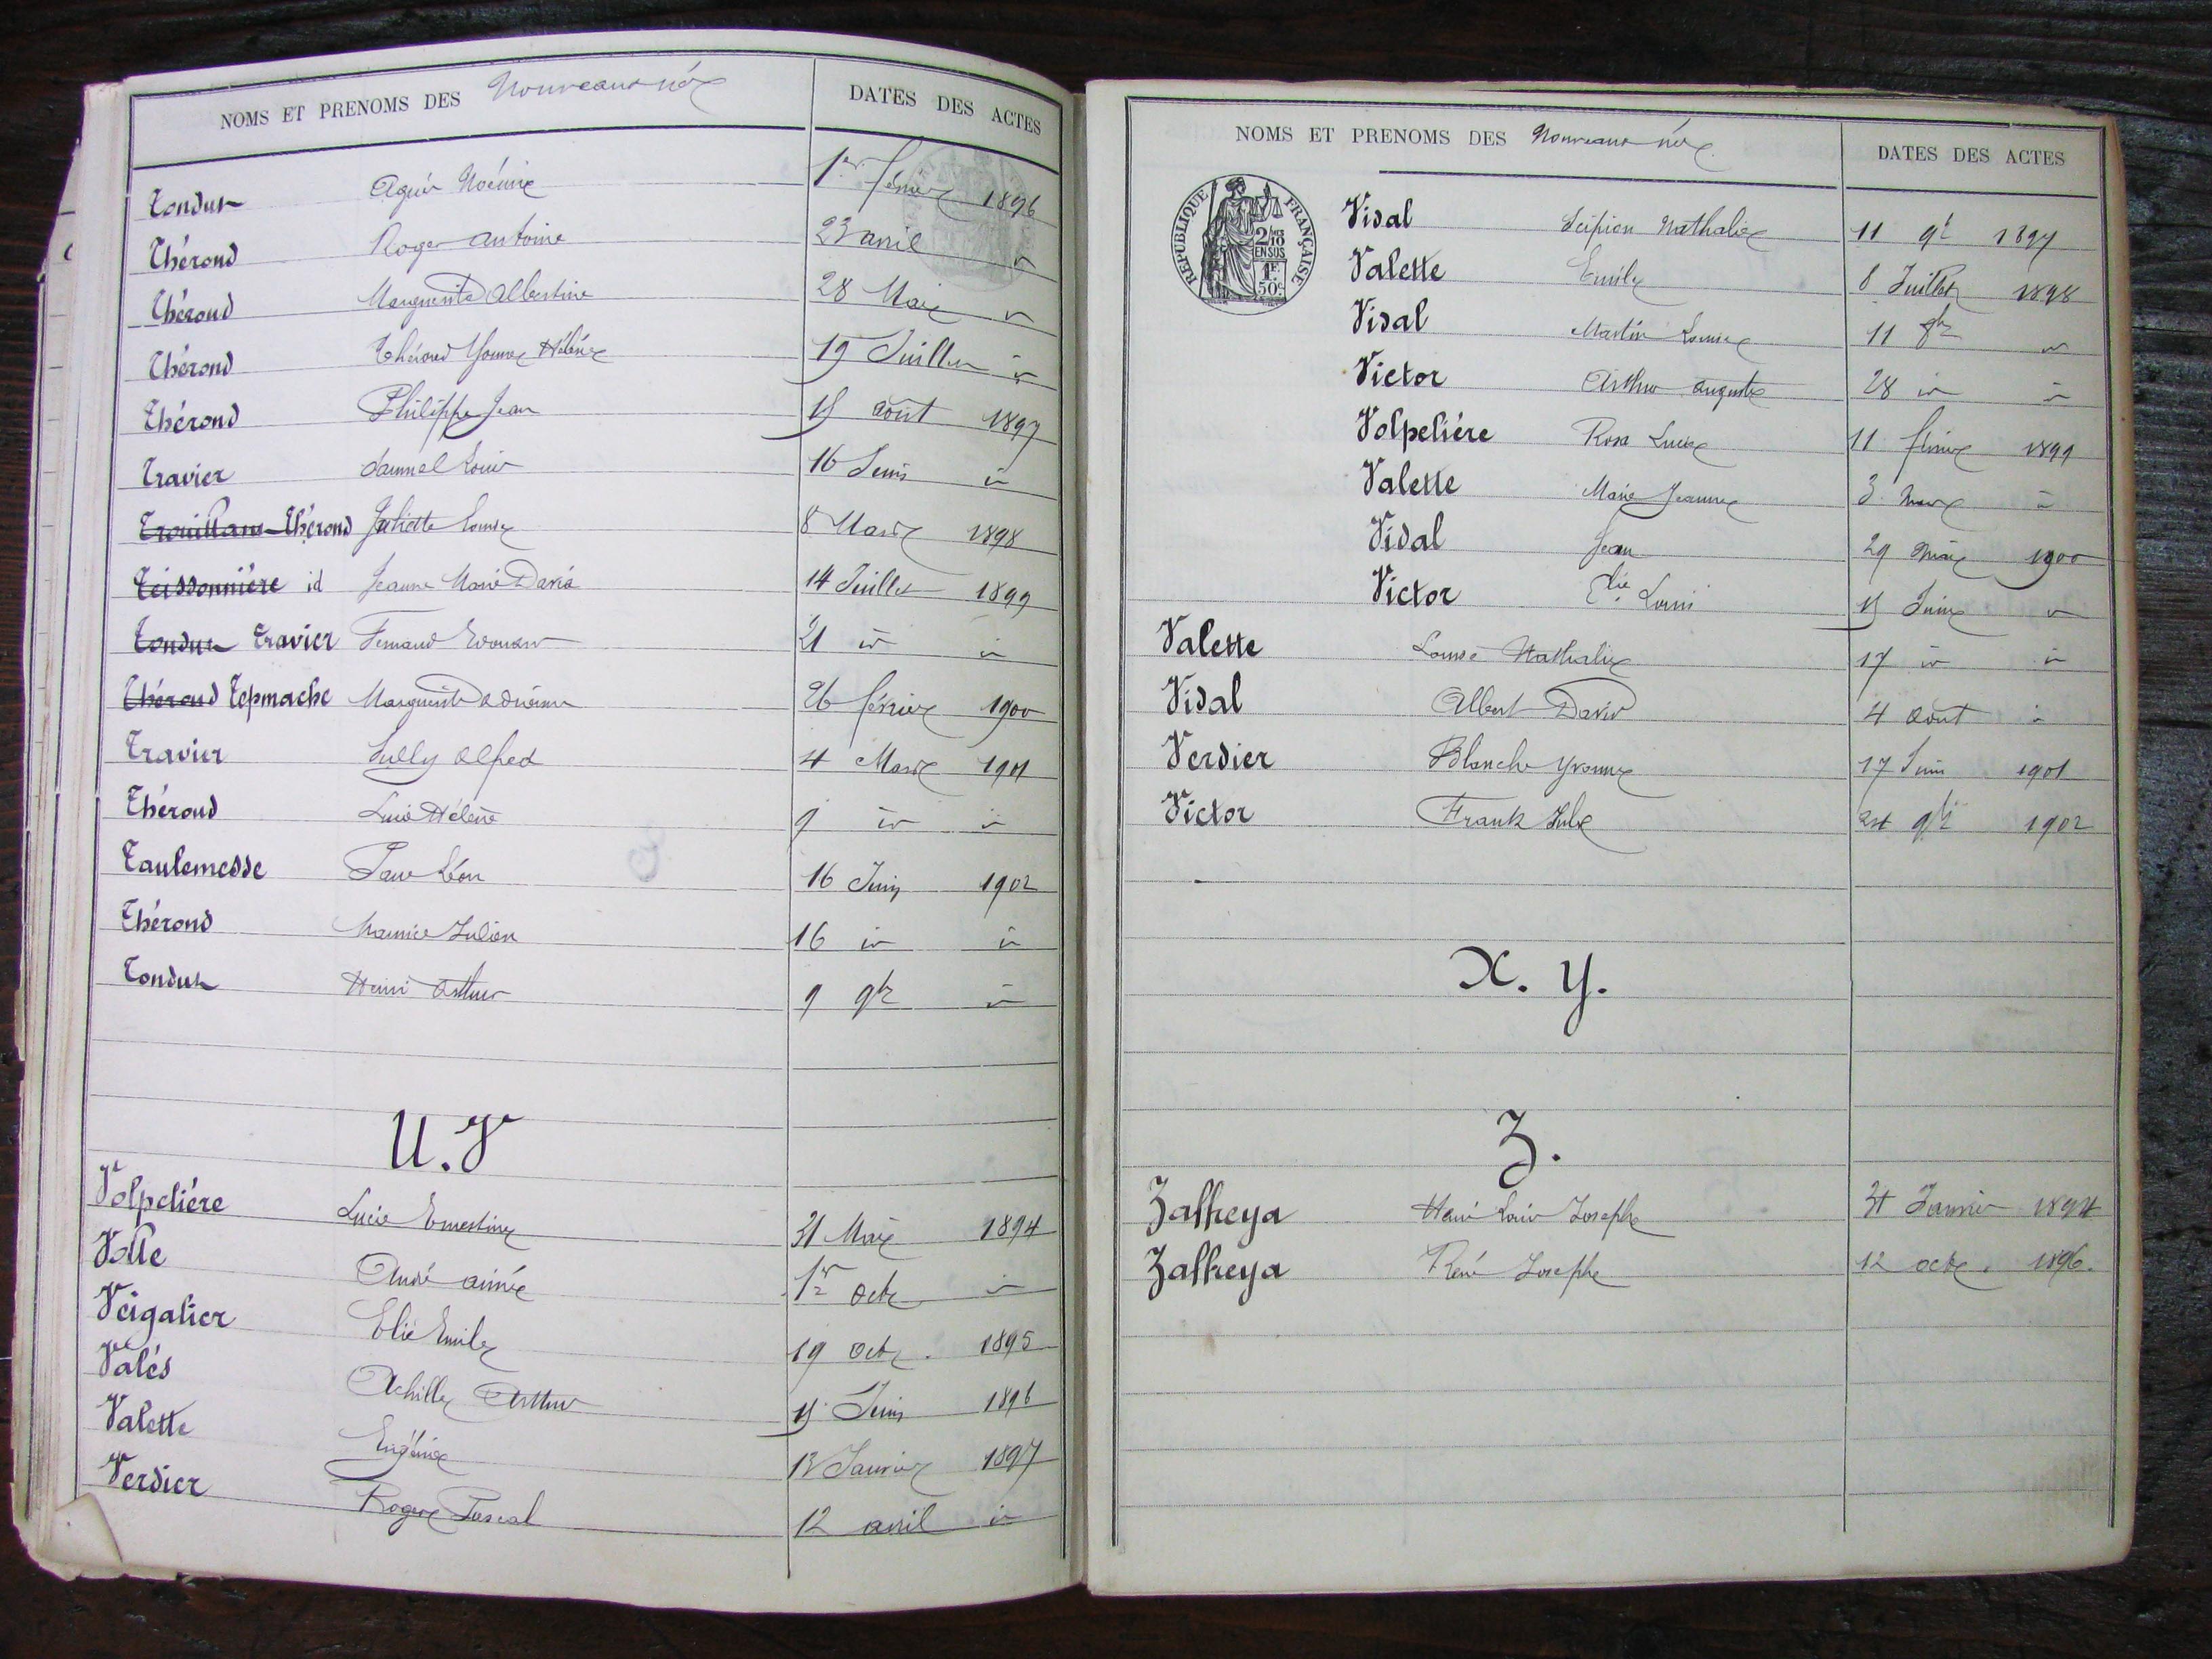 NOMS ET PRENOMS DES Nouveaux nés DATES DES ACTES
Tondut Noémie 1er février 1896
Thérond Roger Antoine 23 avril
Thérond Marguerite Albertine 28 Mai
Thérond Thérond Hélène 19 Juillet
Thérond Philippe Jean 15 août 1897
Travier Samuel Louis 16 Juin id
Trouillans Thérond Juliette Louise 8 Mars 1898
Teissonnière id Jeanne Marie 14 Juillet 1899
Tondut Travier Fernand Edouard 21 id id
Thérond Tepmache Marguerite Adrienne 26 février 1900
Travier Sully Alfred 4 Mars 1901
Thérond Hélène 9 id id
Taulemesse Léon 16 Juin 1902
Thérond Maurice Julien 16 id id
Tondut Henri Arthur 9 9bre id
U.V
Volpelière Lucie Ernestine 31 Mai 1894
Volle André aimé 1er octe id
Veigalier Elie Emile 19 octe. 1895
Valés Achille Arthur 15 Juin 1896
Valette Eugénie Janvier 1897
Verdier Roger Pascal 12 avril id
NOMS ET PRENOMS DES Nouveaux nés. DATES DES ACTES
REPUBLIQUE FRANÇAISE
2/10 EN SUS
1F. 50c
Vidal Scipion Nathalie 11 9bre 1897
Valette Emile 8 Juillet 1898
Vidal Martin Louise 11
Victor Arthur Auguste 28 id id
Volpelière Rosa 11 février 1899
Valette Marie Jeanne 3 Mars id
Vidal Jean 29 Mai 1900
Victor Elie Louis 15 Juin
Valette Louise Nathalie 17 id id
Vidal Albert David 4 août id
Verdier Blanche Yvonne 17 Juin 1901
Victor Frank Jules 9bre 1902
X. Y.
Z.
Zalheya Henri Louis Josephe 31 Janvier 1894
Zalheya René Josephe 12 octe. 1896.